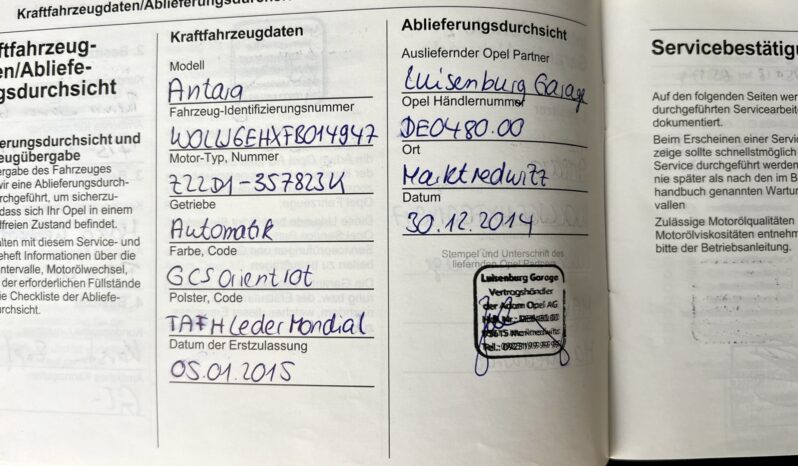 Kraftfahrzeugdaten/Ablieferungsdurchsicht
ftfahrzeug-
en/Abliefe-
gsdurchsicht
erungsdurchsicht und
eugübergabe
ergabe des Fahrzeuges
wir eine Ablieferungsdurch-
rchgeführt, um sicherzu-
dass sich Ihr Opel in einem
dfreien Zustand befindet.
alten mit diesem Service- und
eheft Informationen über die
ntervalle, Motorölwechsel,
der erforderlichen Füllstände
ie Checkliste der Abliefe-
urchsicht.
Kraftfahrzeugdaten
Modell
Antara
Fahrzeug-Identifizierungsnummer
WOLLW6EHXFB014947
Motor-Typ, Nummer
Z22D1-357823K
Getriebe
Automatik
Farbe, Code
GCS Orient Rot
Polster, Code
TAFH Leder Mondial
Datum der Erstzulassung
05.01.2015
Ablieferungsdurchsicht
Ausliefernder Opel Partner
Luisenburg Garage
Opel Händlernummer
DE0480.00
Ort
Marktredwitz
Datum
30.12.2014
Stempel und Unterschrift des
liefernden Opel Partners
Luisenburg Garage
Vertragshändler
der Adam Opel AG
Marktredwitz
Servicebestätigu
Auf den folgenden Seiten wer
durchgeführten Servicearbeite
dokumentiert.
Beim Erscheinen einer Servic
zeige sollte schnellstmöglich
Service durchgeführt werden
nie später als nach den im B
handbuch genannten Wartur
vallen
Zulässige Motorölqualitäten
Motorölviskositäten entnehm
bitte der Betriebsanleitung.